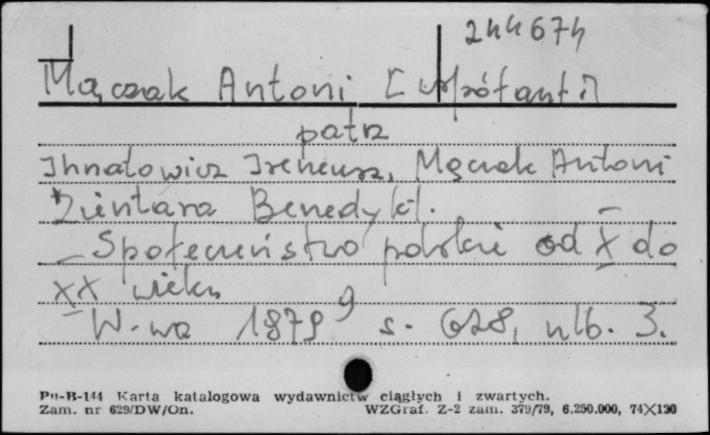 244674
Mączak Antoni [współaut.]
patrz
Ihnatowicz Ireneusz, Mączak Antoni
Zientara Benedykt.
– Społeczeństwo polskie od X do
XX wieku
W-wa 1879 9 s. 628, nlb. 3.
Pu-B-144 Karta katalogowa wydawnictw ciągłych i zwartych.
Zam. nr 629/DW/On. WZGraf. Z-2 zam. 379/79, 6.250.000, 74X130